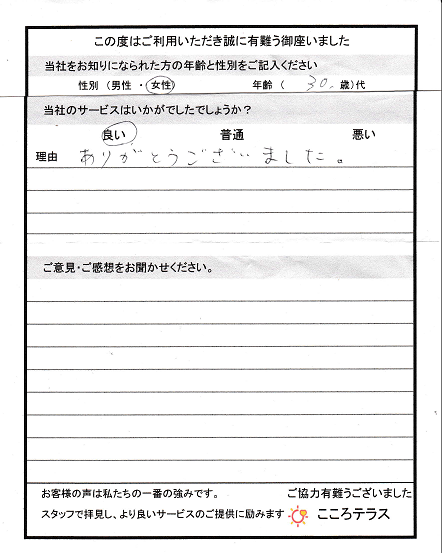 この度はご利用いただき誠に有難う御座いました
当社をお知りになられた方の年齢と性別をご記入ください
性別 (男性 ・ 女性) 年齢 ( 30. 歳)代
当社のサービスはいかがでしたでしょうか？
良い 普通 悪い
理由 ありがとうございました。
ご意見・ご感想をお聞かせください。
お客様の声は私たちの一番の強みです。 ご協力有難うございました
スタッフで拝見し、より良いサービスのご提供に励みます こころテラス